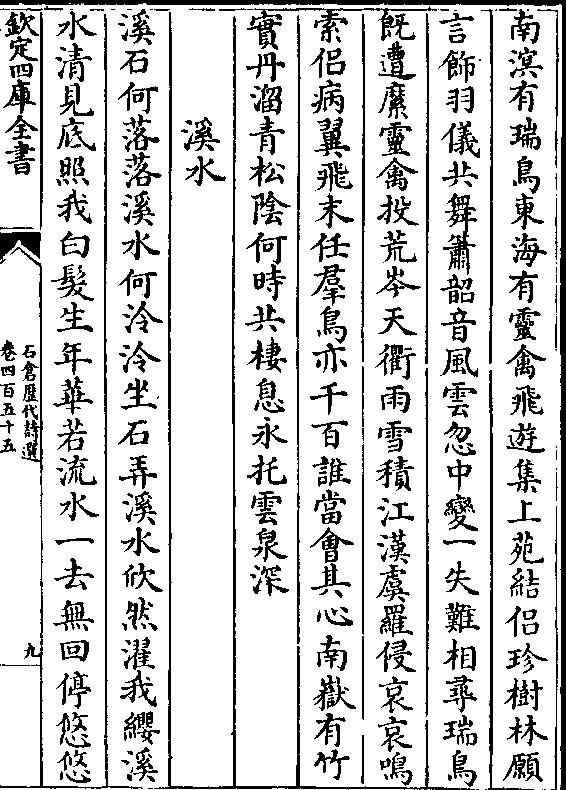 南溟有瑞鳥東海有靈禽飛遊集上苑結侶珍樹林願
言飾羽儀共舞簫韶音風雲忽中變一失難相尋瑞鳥
旣遭縻靈禽投荒岑天衢雨雪積江漢虞羅侵哀哀鳴
索侶病翼飛末任羣鳥亦千百誰當會其心南嶽有竹
實丹溜青松陰何時共棲息永托雲泉深
溪水
溪石何落落溪水何泠泠坐石弄溪水欣然濯我纓溪
水清見底照我白髮生年華若流水一去無回停悠悠
欽定四庫全書
石倉歷代詩選
卷四百五十五
九